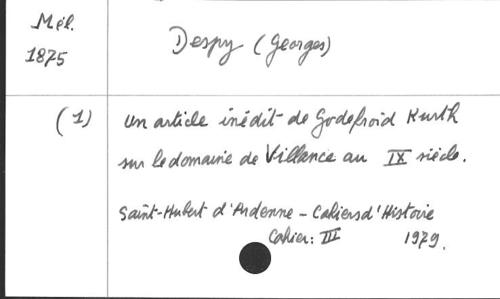 Mél.
1875
Despy (Georges)
(1) Un article inédit de Godefroid Kurth
sur le domaine de Villance au IX siècle.
Saint-Hubert d'Ardenne - Cahiers d'Histoire
Cahier: III 1979.